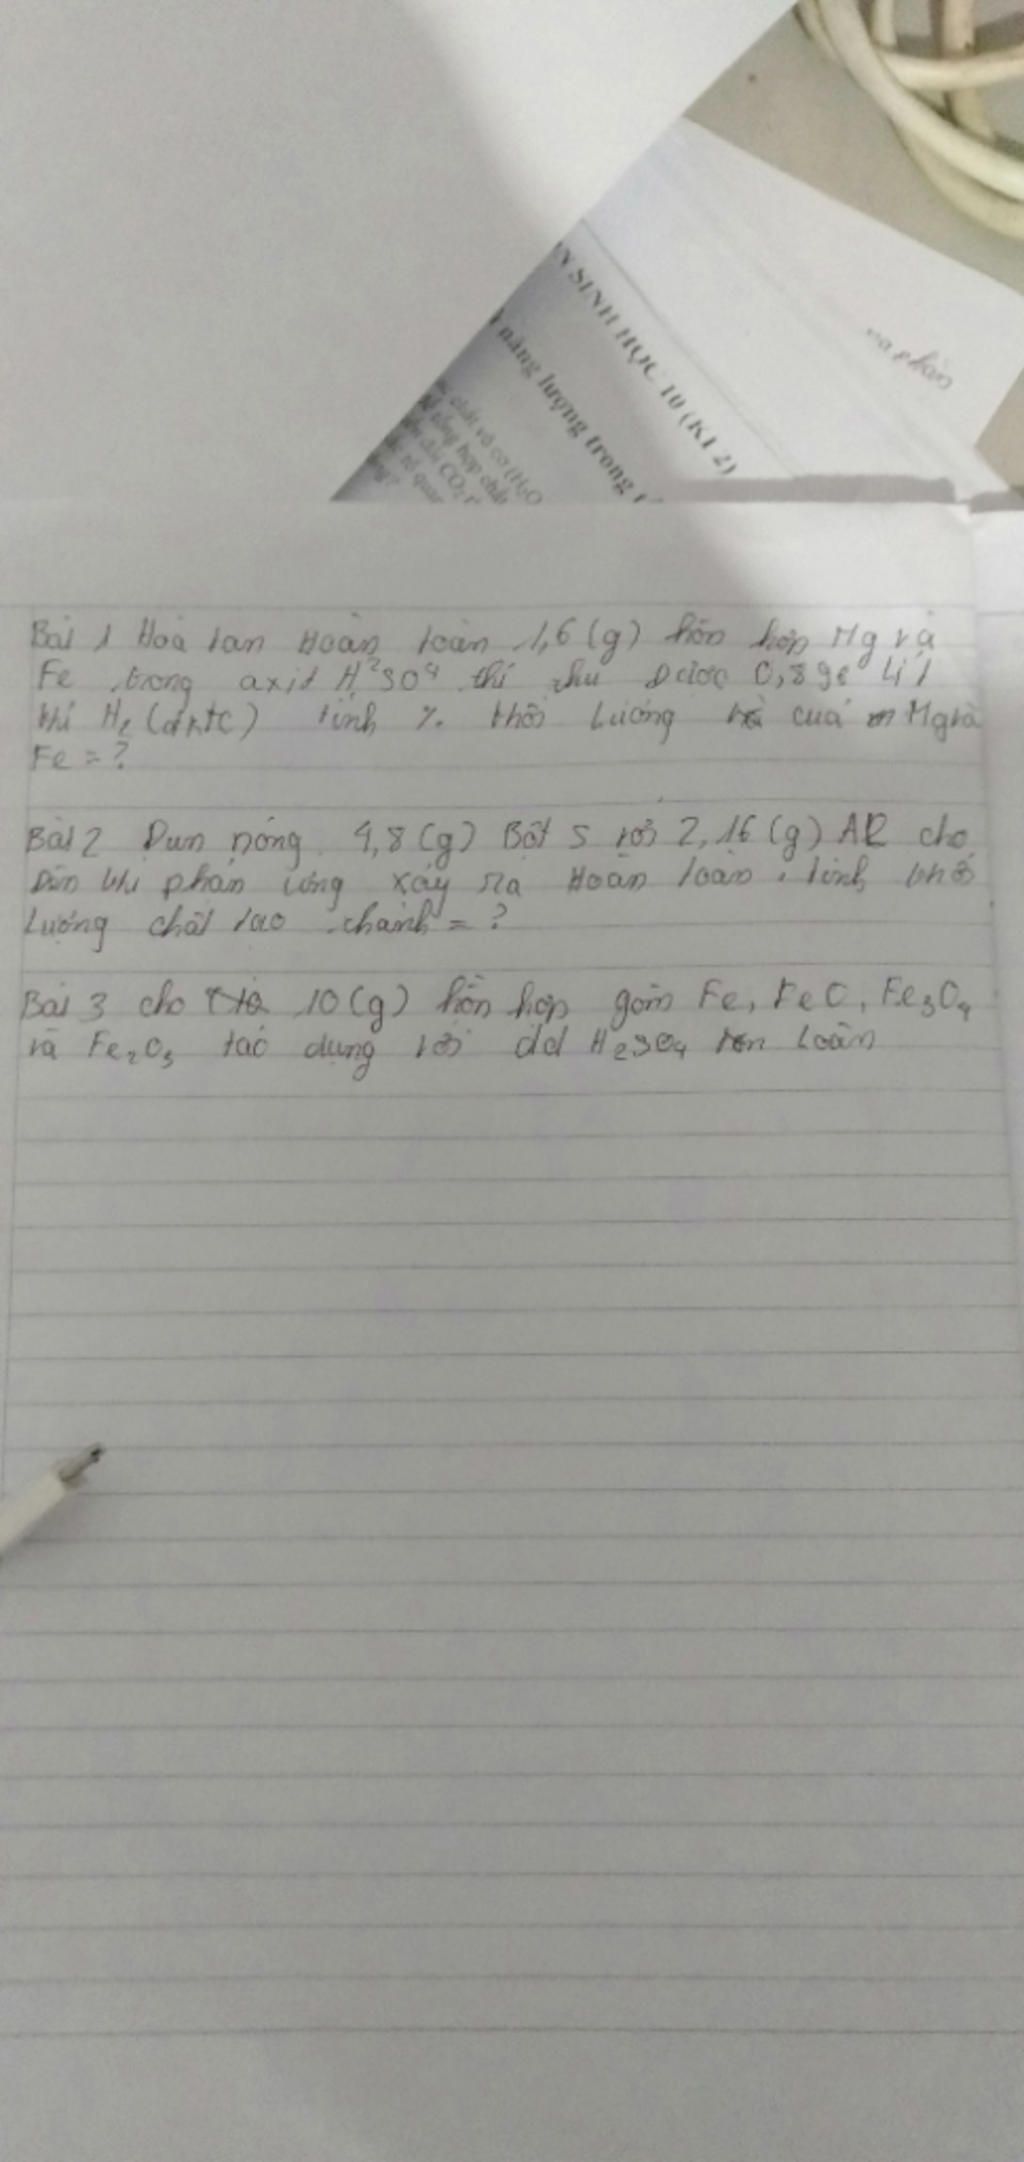 N SINH HỌC 10 (KI 2)
năng lượng trong
chất vô cơ (H₂O
tổng hợp chất
CO₂
Bài 1 Hoà tan Hoàn toàn 1,6 (g) hỗn hợp Mg và
Fe trong axit H²SO⁴ thì thu Được 0,896 Lít
khí H₂ (đktc) tính % khối Lượng của Mg và
Fe = ?
Bài 2 Đun nóng 4,8 (g) Bột S với 2,16 (g) Al cho
Đến khi phản ứng xảy ra Hoàn toàn. tính khối
Lượng chất tạo thành = ?
Bài 3 cho 10 (g) hỗn hợp gồm Fe, FeO, Fe₃O₄
và Fe₂O₃ tác dụng với dd H₂SO₄ Loãn